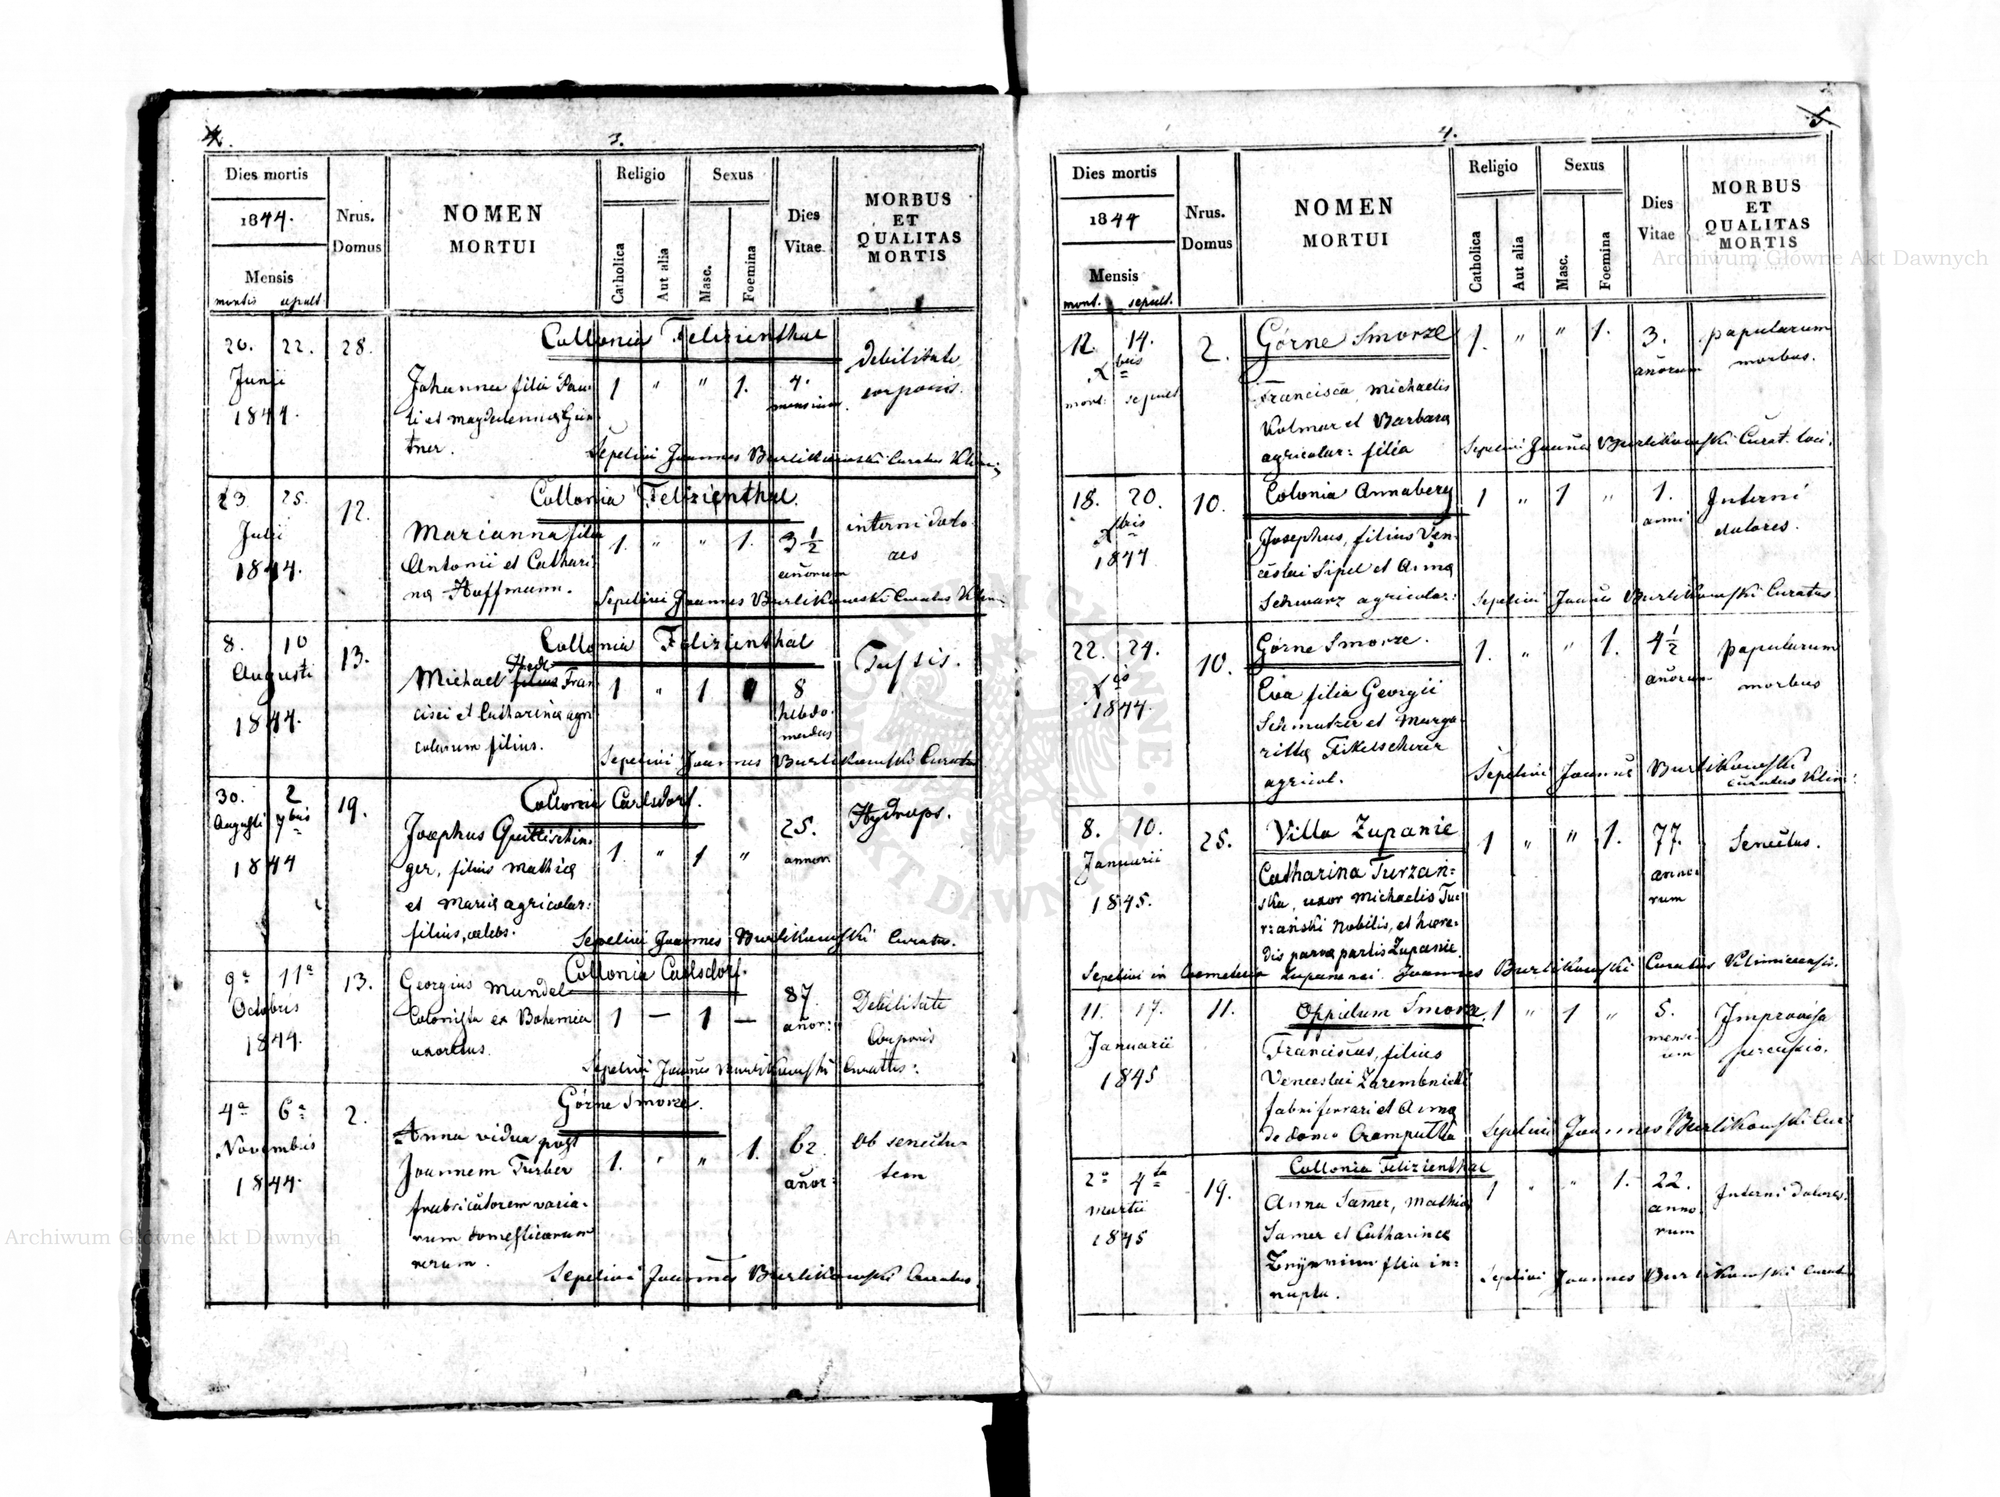 4.
3.
Dies mortis
1844.
Mensis
mortis sepult.
Nrus.
Domus
NOMEN
MORTUI
Religio
Catholica
Aut alia
Sexus
Masc.
Foemina
Dies
Vitae
MORBUS
ET
QUALITAS
MORTIS
Collonia Felizienthal
20. 22. 28.
Junii
1844.
Johanna filia Pau-
li et Magdalenna Gün-
tner.
1 " " 1.
4.
mensium
debilitate
corporis.
Sepelivi Joannes Burlikowski Curatus
Collonia Felizienthal.
23 25. 12.
Julii
1844.
Marianna filia
Antonii et Cathari
na Hoffmann.
1. " " 1.
3 1/2
añorum
interni dolo
res
Sepelivi Joannes Burlikowski Curatus
Collonia Felizienthal
8. 10 13.
Augusti
1844.
Michael filius Fran
cisci et Catharina agri
colarum filius.
1 " 1
8
hebdo
madas
Tussis.
Sepelivi Joannes Burlikowski Curatus
Collonia Carlsdorf.
30. 2 19.
Augusti 7bris
1844
Josephus Quittschin-
ger, filius Mathia
et Maria agricolar:
filius, celebs.
1. " 1 "
25.
annor
Hydrops.
Sepelivi Joannes Burlikowski Curatus.
Collonia Carlsdorf.
9a 11a 13.
Octobris
1844.
Georgius Mundel
Colonista ex Bohemia
uxoratus.
1 — 1 —
87.
añor:
Debilitate
Corporis
Sepelivi Joañes Burlikowski Curatus:
Górne Smorze.
4a 6a 2.
Novembris
1844.
Anna vidua post
Joannem Turber
fabricatorem varia-
rum domesticarum
rerum.
1. " " 1.
62
añor:
Ob senectu-
tem
Sepelivi Joannes Burlikowski Curatus.
4.
5.
Dies mortis
1844
Mensis
mort. sepult.
Nrus.
Domus
NOMEN
MORTUI
Religio
Catholica
Aut alia
Sexus
Masc.
Foemina
Dies
Vitae
MORBUS
ET
QUALITAS
MORTIS
12. 14. 2.
Xbris
mort: sepult
Górne Smorze
Francisca Michaelis
Kolmar et Barbara
agricolar: filia
1. " " 1.
3.
añorum
popularum
morbus.
Sepelivi Joañes Burlikowski Curat. loci.
18. 20. 10.
Xbris
1844
Colonia Annaberg
Josephus, filius Ven-
ceslai Sipel et Anna
Schwarz agricolar:
1 " 1 "
1.
anni
Interni
dolores.
Sepelivi Joañes Burlikowski Curatus
22. 24. 10.
Xbis
1844.
Górne Smorze.
Eva filia Georgii
Schmutzer et Marga-
ritta
agricol.
1. " " 1.
4 1/2
añorum
popularum
morbus
Sepelivi Joannes Burlikowski
Curatus Klim:
8. 10. 25.
Januarii
1845.
Villa Zupanie
Catharina Turzań=
ska, uxor Michaelis Tu=
rzański Nobilis, et hære=
dis parva partis Zupanie.
1 " " 1.
77.
anno-
rum
Senectus.
Sepelivi in Cœmeterio Joannes Burlikowski Curatus Klimicensis.
11. 17. 11.
Januarii
1845
Oppidum Smorze
Franciscus, filius
Venceslai Zarembnicki
fabri ferrari et Anna
de domo
1 " 1 "
5.
mensi-
um
Improvisa
percussio.
Sepelivi Joannes Burlikowski Cur:
2a 4ta 19.
Martii
1845
Collonia Felizienthal
Anna Samer, Mathia
Samer et Catharina
filia in-
nupta.
1 " " 1.
22.
anno
rum
Interni dolores.
Sepelivi Joannes Burlikowski Curatus
Archiwum Główne Akt Dawnych
Archiwum Główne Akt Dawnych
ARCHIWUM GŁÓWNE AKT DAWNYCH